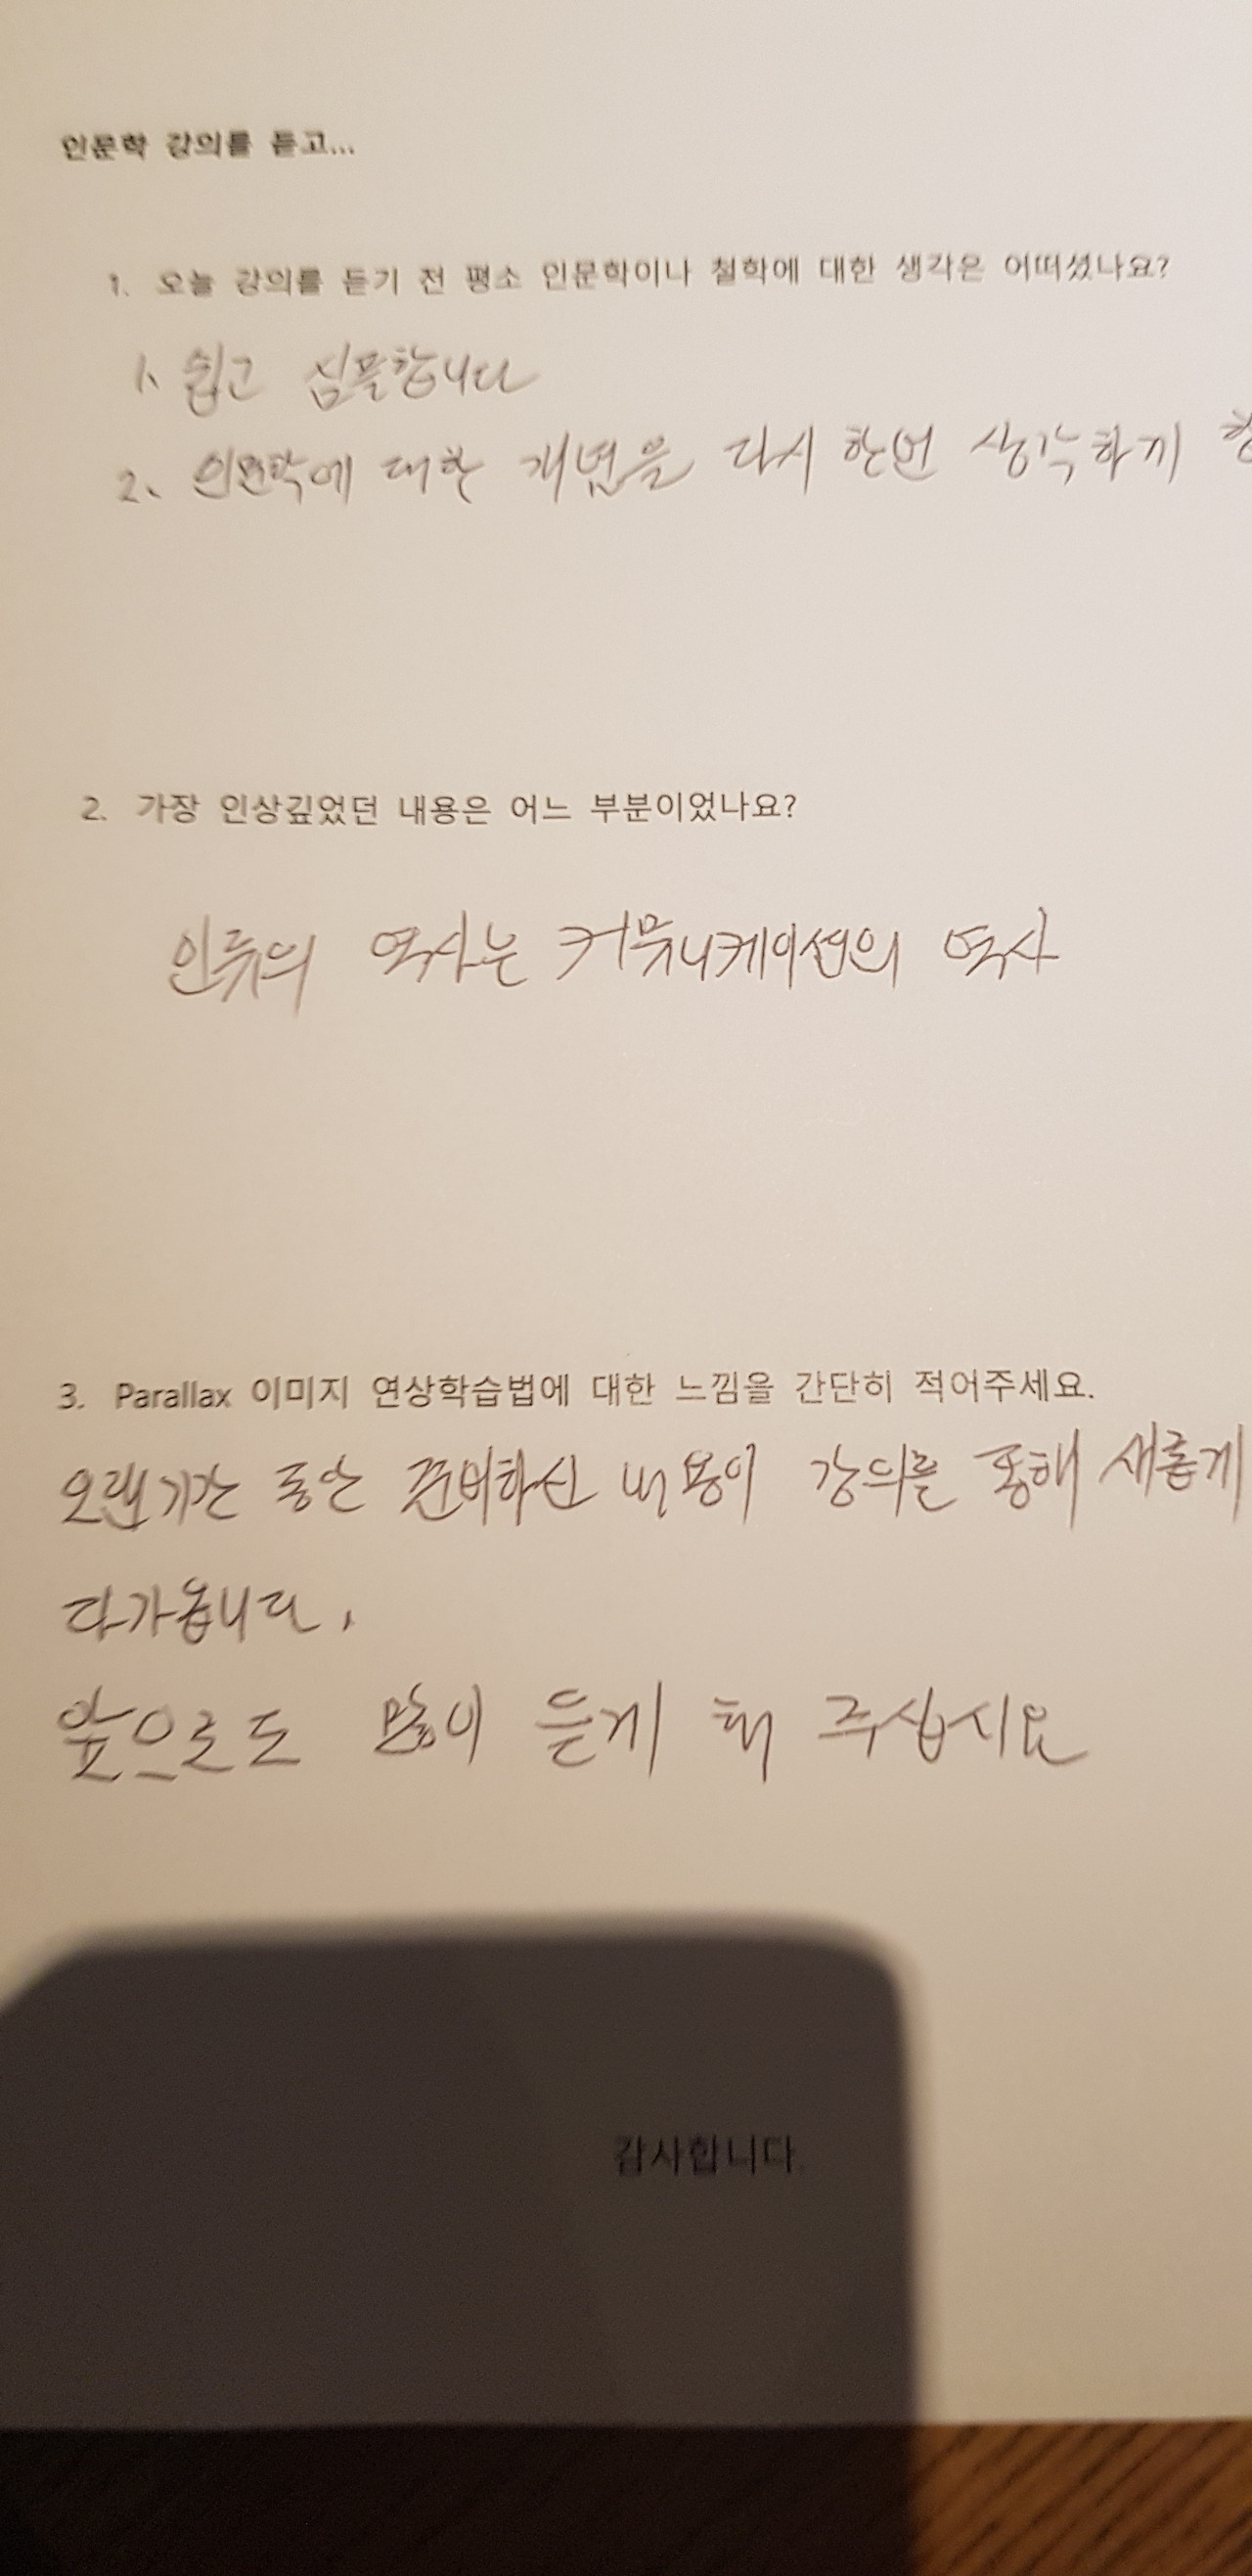 인문학 강의를 듣고...
1. 오늘 강의를 듣기 전 평소 인문학이나 철학에 대한 생각은 어떠셨나요?
1. 쉽고 심플합니다
2. 인문학에 대한 개념을 다시 한번 생각하게
2. 가장 인상깊었던 내용은 어느 부분이었나요?
인류의 역사는 커뮤니케이션의 역사
3. Parallax 이미지 연상학습법에 대한 느낌을 간단히 적어주세요.
오랜기간 동안 준비하신 내용이 강의를 통해 새롭게
다가옵니다.
앞으로도 많이 듣게 해 주십시요
감사합니다.